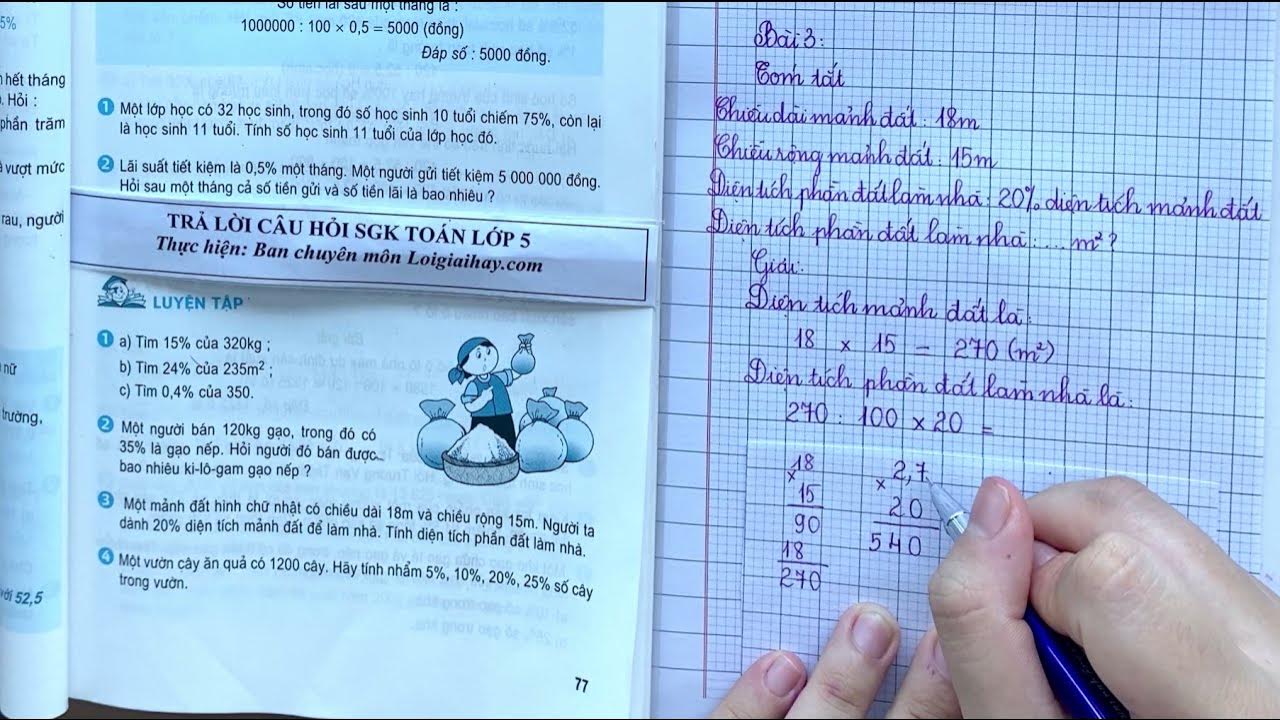 5%
Số tiền lãi sau một tháng là :
1000000 : 100 × 0,5 = 5000 (đồng)
Đáp số : 5000 đồng.
hết tháng
. Hỏi :
phần trăm
vượt mức
rau, người
nữ
trường,
với 52,5
1 Một lớp học có 32 học sinh, trong đó số học sinh 10 tuổi chiếm 75%, còn lại
là học sinh 11 tuổi. Tính số học sinh 11 tuổi của lớp học đó.
2 Lãi suất tiết kiệm là 0,5% một tháng. Một người gửi tiết kiệm 5 000 000 đồng.
Hỏi sau một tháng cả số tiền gửi và số tiền lãi là bao nhiêu ?
TRẢ LỜI CÂU HỎI SGK TOÁN LỚP 5
Thực hiện: Ban chuyên môn Loigiaihay.com
LUYỆN TẬP
1 a) Tìm 15% của 320kg ;
b) Tìm 24% của 235m² ;
c) Tìm 0,4% của 350.
2 Một người bán 120kg gạo, trong đó có
35% là gạo nếp. Hỏi người đó bán được
bao nhiêu ki-lô-gam gạo nếp ?
3 Một mảnh đất hình chữ nhật có chiều dài 18m và chiều rộng 15m. Người ta
dành 20% diện tích mảnh đất để làm nhà. Tính diện tích phần đất làm nhà.
4 Một vườn cây ăn quả có 1200 cây. Hãy tính nhẩm 5%, 10%, 20%, 25% số cây
trong vườn.
77
Bài 3:
Tóm tắt
Chiều dài mảnh đất : 18m
Chiều rộng mảnh đất : 15m
Diện tích phần đất làm nhà : 20% diện tích mảnh đất
Diện tích phần đất làm nhà : .... m² ?
Giải:
Diện tích mảnh đất là :
18 × 15 = 270 (m²)
Diện tích phần đất làm nhà là :
270 : 100 × 20 =
18
×
15
90
18
270
2,7
×
20
540